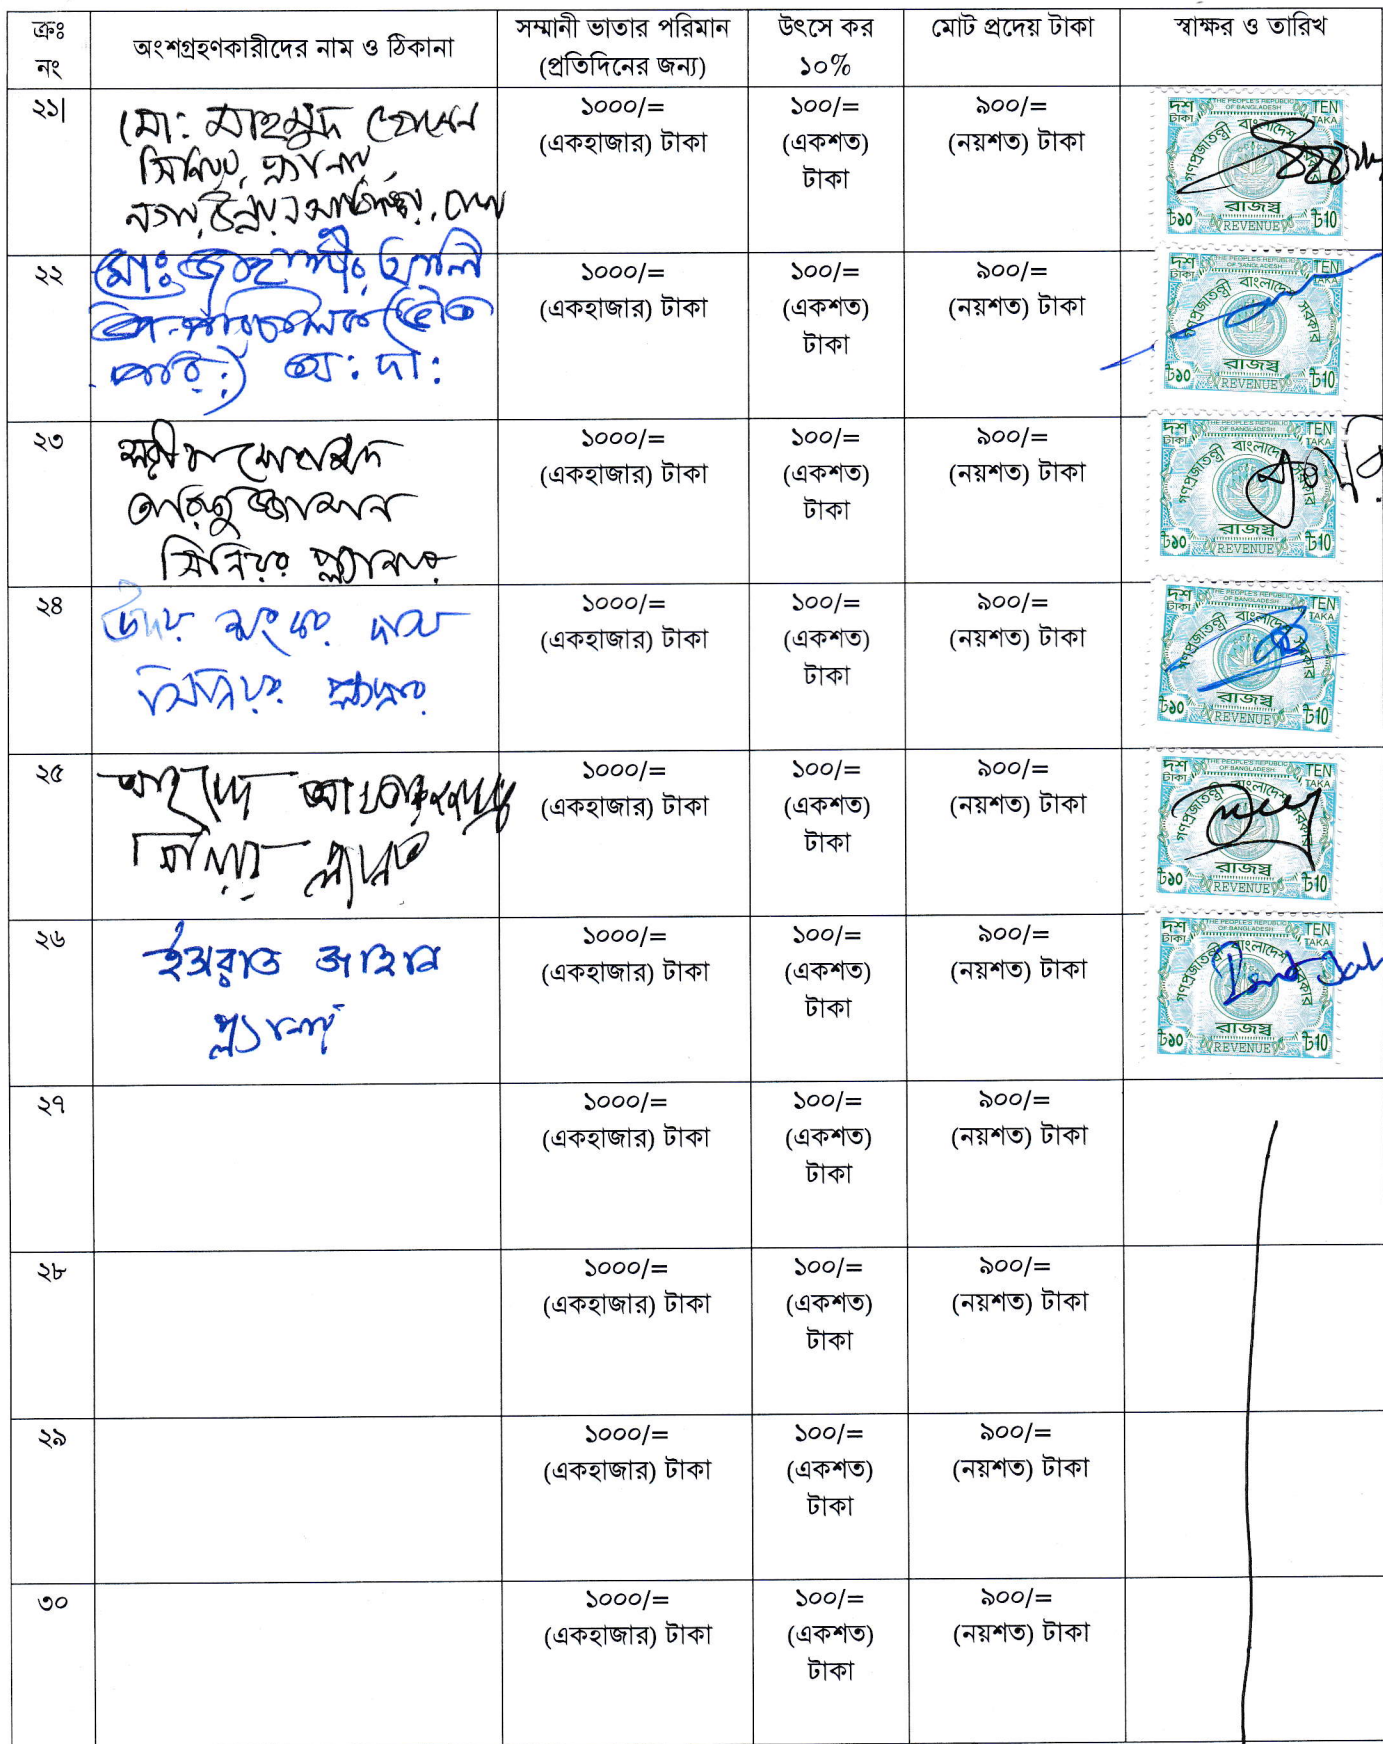 ক্রঃ নং
অংশগ্রহণকারীদের নাম ও ঠিকানা
সম্মানী ভাতার পরিমান
(প্রতিদিনের জন্য)
উৎসে কর
১০%
মোট প্রদেয় টাকা
স্বাক্ষর ও তারিখ
২১|
মো: মাহমুদ হোসেন
সিনিয়র প্ল্যানার
নগর উন্নয়ন অধিদপ্তর,
১০০০/=
(একহাজার) টাকা
১০০/=
(একশত)
টাকা
৯০০/=
(নয়শত) টাকা
THE PEOPLE'S REPUBLIC OF BANGLADESH
দশ টাকা
TEN TAKA
গণপ্রজাতন্ত্রী বাংলাদেশ সরকার
রাজস্ব
৳১০ REVENUE ৳10
২২
মোঃ আলী
অ: দা:
১০০০/=
(একহাজার) টাকা
১০০/=
(একশত)
টাকা
৯০০/=
(নয়শত) টাকা
THE PEOPLE'S REPUBLIC OF BANGLADESH
দশ টাকা
TEN
গণপ্রজাতন্ত্রী বাংলাদেশ সরকার
রাজস্ব
৳১০ REVENUE ৳10
২৩
সিনিয়র প্ল্যানার
১০০০/=
(একহাজার) টাকা
১০০/=
(একশত)
টাকা
৯০০/=
(নয়শত) টাকা
THE PEOPLE'S REPUBLIC OF BANGLADESH
দশ টাকা
TEN TAKA
গণপ্রজাতন্ত্রী বাংলাদেশ সরকার
রাজস্ব
৳১০ REVENUE ৳10
২৪
উদয় শংকর দাস
সিনিয়র প্ল্যানার
১০০০/=
(একহাজার) টাকা
১০০/=
(একশত)
টাকা
৯০০/=
(নয়শত) টাকা
THE PEOPLE'S REPUBLIC OF BANGLADESH
দশ টাকা
TEN TAKA
গণপ্রজাতন্ত্রী বাংলাদেশ সরকার
রাজস্ব
৳১০ REVENUE ৳10
২৫
আহমেদ আখতারুজ্জামান
সিনিয়র প্ল্যানার
১০০০/=
(একহাজার) টাকা
১০০/=
(একশত)
টাকা
৯০০/=
(নয়শত) টাকা
THE PEOPLE'S REPUBLIC OF BANGLADESH
দশ টাকা
TEN TAKA
গণপ্রজাতন্ত্রী বাংলাদেশ সরকার
রাজস্ব
৳১০ REVENUE ৳10
২৬
ইশরাত জাহান
প্ল্যানার
১০০০/=
(একহাজার) টাকা
১০০/=
(একশত)
টাকা
৯০০/=
(নয়শত) টাকা
THE PEOPLE'S REPUBLIC OF BANGLADESH
দশ টাকা
TEN TAKA
গণপ্রজাতন্ত্রী বাংলাদেশ সরকার
রাজস্ব
৳১০ REVENUE ৳10
২৭
১০০০/=
(একহাজার) টাকা
১০০/=
(একশত)
টাকা
৯০০/=
(নয়শত) টাকা
২৮
১০০০/=
(একহাজার) টাকা
১০০/=
(একশত)
টাকা
৯০০/=
(নয়শত) টাকা
২৯
১০০০/=
(একহাজার) টাকা
১০০/=
(একশত)
টাকা
৯০০/=
(নয়শত) টাকা
৩০
১০০০/=
(একহাজার) টাকা
১০০/=
(একশত)
টাকা
৯০০/=
(নয়শত) টাকা